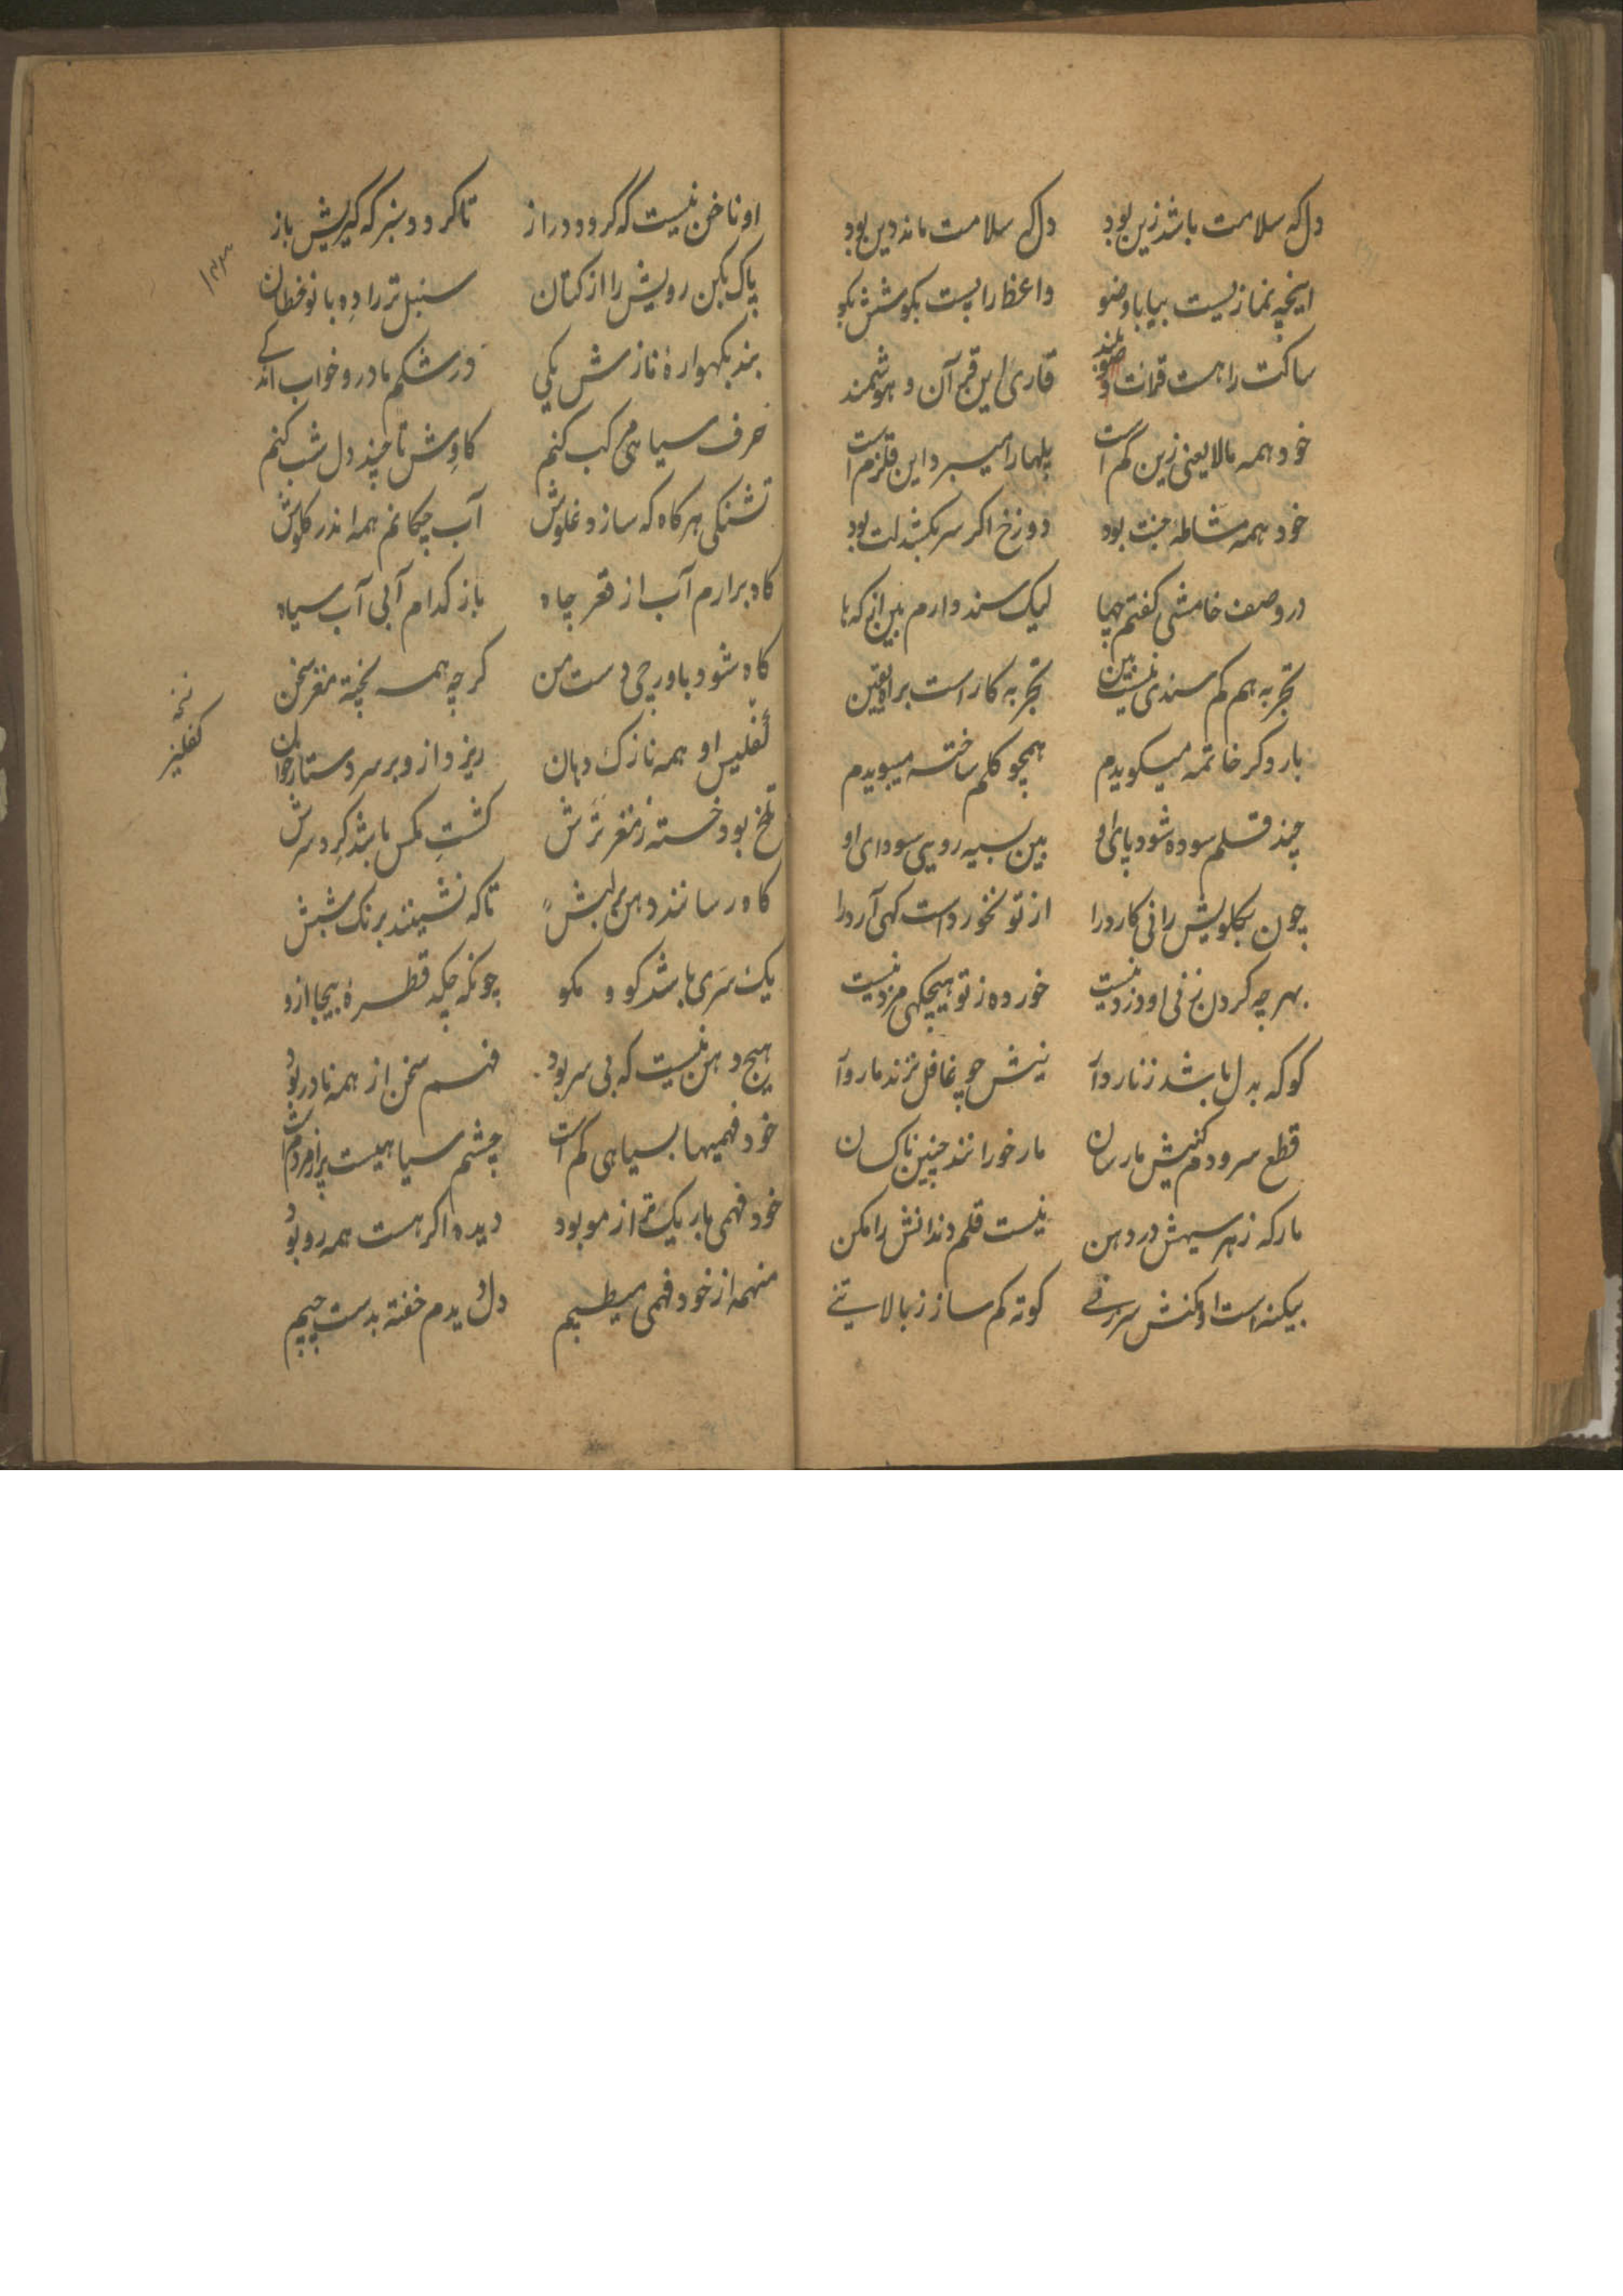 دل که سلامت باشد زین بود دل که سلامت ماند دین بود
اینچه نماز یست بیا با وضو واعظ را پست بکو شش بکو
ساکت را هست قرائت بلند قاری این قرآن و هوشمند
خود همه مالا یعنی زین کم است پلها را میبرد این قلزم است
خود همه مشاطهٔ جنت بود دوزخ اکر سر بکشد لت بود
در وصف خامشی کفتم چها لیک سند دارم بین از که ها
تجربه هم کم سندی نیست بین تجربه کار است براه یقین
بار دکر خاتمه میکویدم همچو کلم ساخته میبویدم
چند قلم سوده شود پای او بین سیه رویی سودای او
چون بکلویش رانی کارد را از تو نخورد است کهی آرد را
بهر چه کردن زنی او دزد نیست خورده ز تو هیچکهی مزد نیست
کو که بدل باشد زنار وآ نیش چو غافل نزند مار وآ
قطع سرودم کنیش مار سان مار خورانند چنین ناکسان
مار که زهر سیهش در دهن نیست قلم دندانش را مکن
بیکنه است او کنش سرزنی کوته کم ساز ز بالا تنی
او ناخن نیست که کردد دراز تا کردد سبز که کیریش باز
پاک بکن رویش را از کتان سنبل تر را ده با نوخطان
بند بکهوارهٔ نازش یکی در شکم مادر و خواب اندکے
حرف سیاهی مرکب کنم کاوش تا چند دل شب کنم
تشنکی هر کاه که سازد غلوش آب چکانم همه اندر کلوش
کاه برارم آب از قعر چاه باز کدام آبی آب سیاه
کاه شود باورچی دست من کرچه همه پخته مغز سخن
کفلیس او همه نازک دهان ریزد ازو بر سر دستار خوان
تلخ بود خسته ز مغز ترش کشت مکس باشد کرد سرش
کاه رسانند دهن بر لبش تا که نشینند برنک شبش
یک سری باشد کو و مکو چونکه چکد قطرهٔ بیجا ازو
هیچ دهن نیست که بی سر بود فهم سخن از همه نادر بود
خود فهمیها بسیاهی کم است چشم سیاهیست پر از مردم است
خود فهمی باریک تر از مو بود دیده اکر هست همه رو بود
منهمه از خود فهمی میطپم دل دیدم خفته بدست چپم
۱۳۳
کفلیز